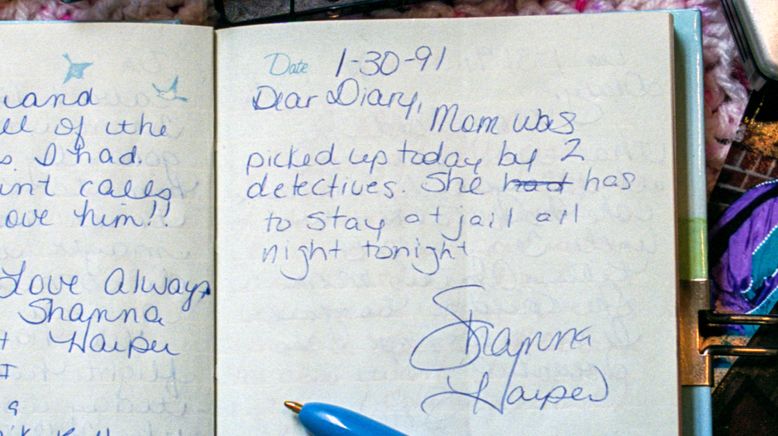 and
of the
I had.
calls
love him!!
Love Always
Shanna
Harper
I
a
Date 1-30-91
Dear Diary,
Mom was
picked up today by 2
detectives. She had has
to stay at jail all
night tonight
Shanna
Harper